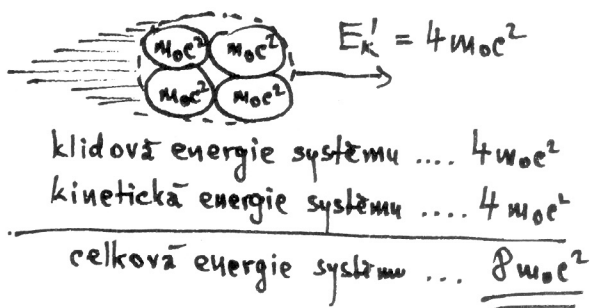 m₀c² m₀c² E'ₖ = 4m₀c²
m₀c² m₀c²
klidová energie systému .... 4m₀c²
kinetická energie systému .... 4m₀c²
celková energie systému ... 8m₀c²